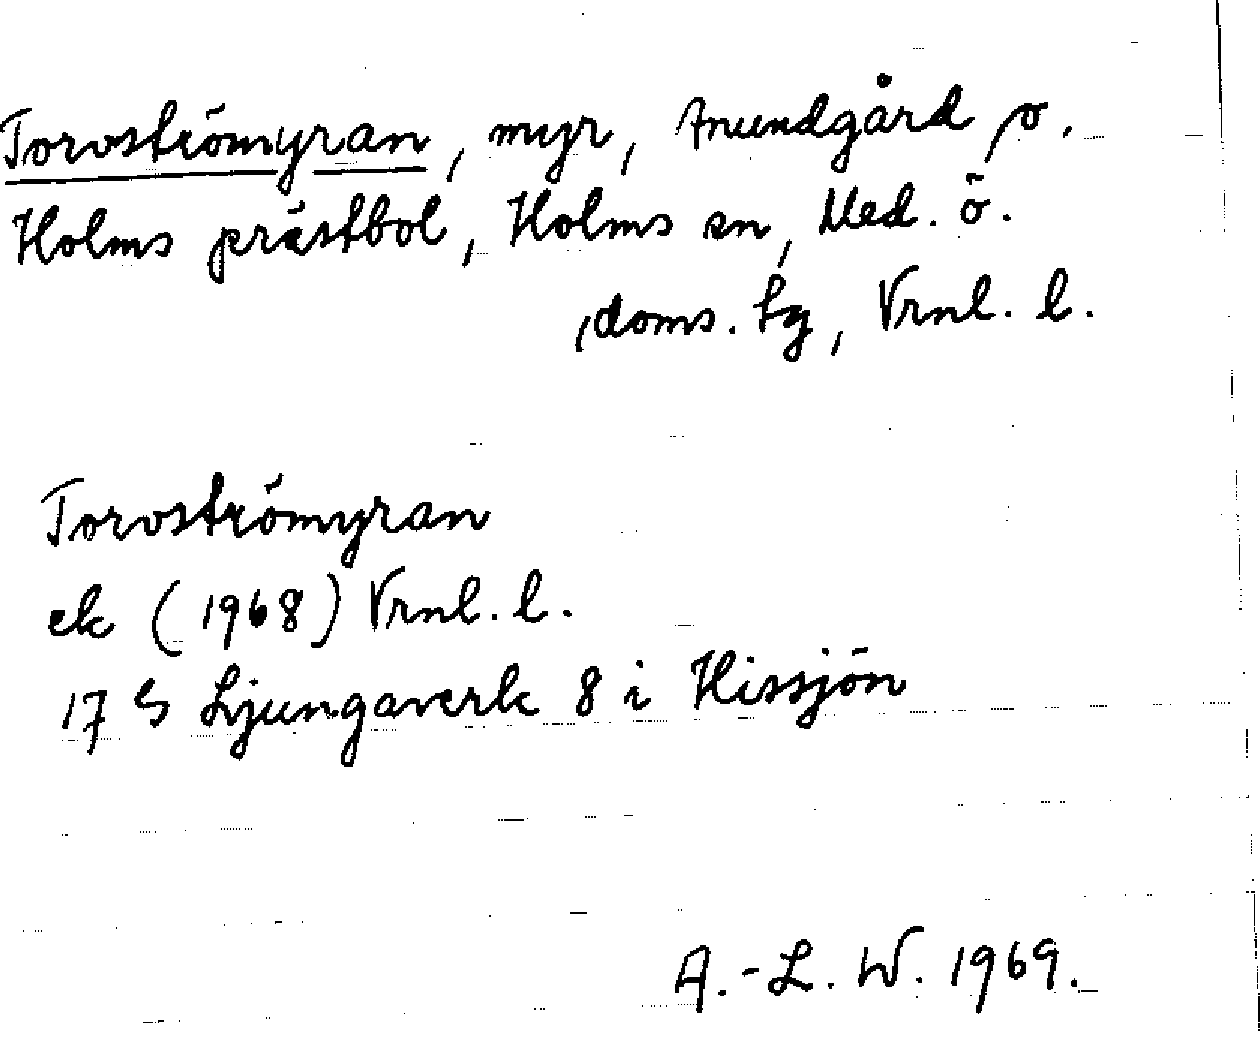 Torvströmyran, myr, Anundgård o.
Holms prästbol, Holms sn, Med. ö.
doms. tg, Vrnl. l.
Torvströmyran
ek (1968) Vrnl. l.
17 G Ljungaverk 8 i Hissjön
A.-L. W. 1969.